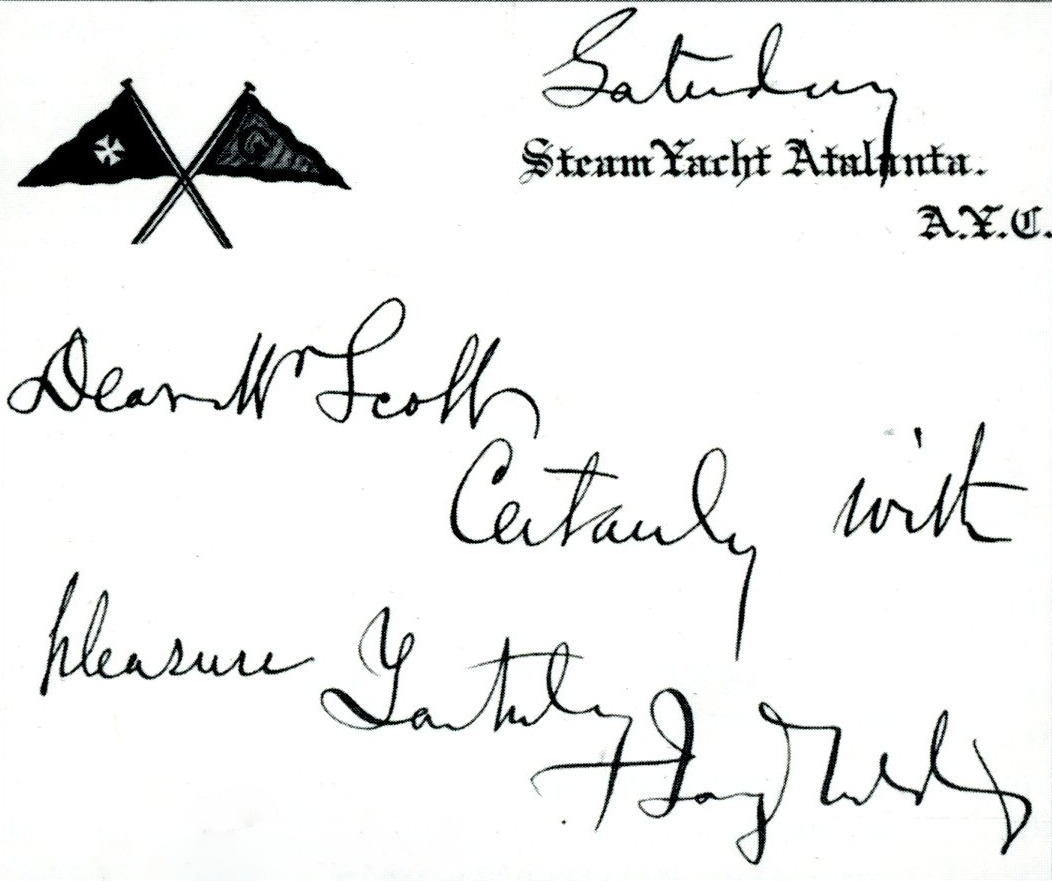 Saturday
Steam Yacht Atalanta.
A.Y.C.
Dear Mr Scott
Certainly with
pleasure Faithfully
Jay Gould